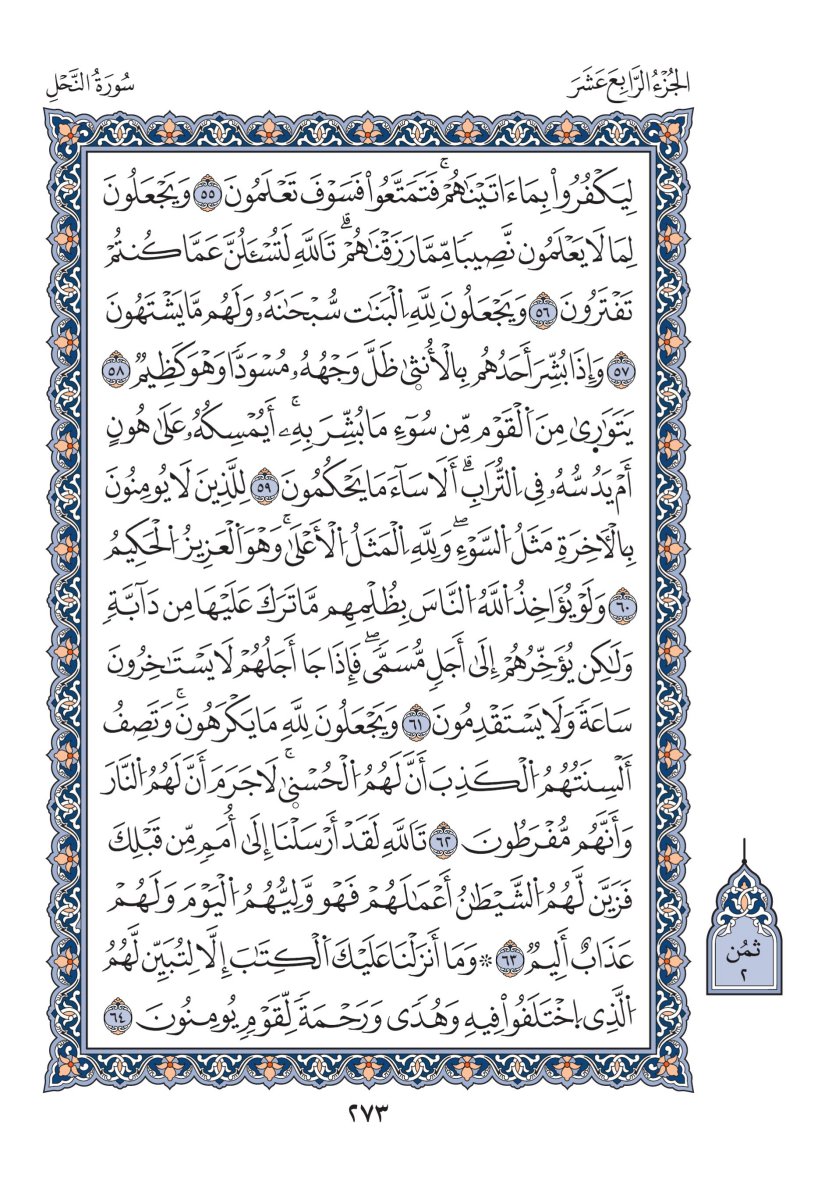 الجُزْءُ الرَّابِعَ عَشَرَ
سُورَةُ النَّحْلِ
لِيَكْفُرُواْ بِمَا ءَاتَيْنَٰهُمْۚ فَتَمَتَّعُواْ فَسَوْفَ تَعْلَمُونَ ٥٥ وَيَجْعَلُونَ
لِمَا لَا يَعْلَمُون نَّصِيبًا مِّمَّا رَزَقْنَٰهُمْۗ تَاللَّهِ لَتُسْـَٔلُنَّ عَمَّا كُنتُمْ
تَفْتَرُونَ ٥٦ وَيَجْعَلُونَ لِلَّهِ اِلْبَنَٰت سُّبْحَٰنَهُۥ وَلَهُم مَّا يَشْتَهُونَ
٥٧ وَإِذَا بُشِّرَ أَحَدُهُم بِالْأُنثۭىٰ ظَلَّ وَجْهُهُۥ مُسْوَدًّا وَهْوَ كَظِيمٌ ٥٨
يَتَوَٰرۭىٰ مِنَ اَلْقَوْم مِّن سُوٓءِ مَا بُشِّرَ بِهِۦٓۚ أَيُمْسِكُهُۥ عَلَىٰ هُونٍ
أَمْ يَدُسُّهُۥ فِي اِلتُّرَابِۗ أَلَا سَآءَ مَا يَحْكُمُونَ ٥٩ لِلَّذِينَ لَا يُومِنُونَ
بِالْأٓخِرَةِ مَثَلُ اُلسَّوْءِۖ وَلِلَّهِ اِلْمَثَلُ اُلْأَعْلَىٰۚ وَهْوَ اَلْعَزِيزُ اُلْحَكِيمُ
٦٠ وَلَوْ يُؤَاخِذُ اُللَّهُ اُلنَّاسَ بِظُلْمِهِم مَّا تَرَكَ عَلَيْهَا مِن دَآبَّةٍ
وَلَٰكِن يُؤَخِّرُهُمْ إِلَىٰ أَجَلٍ مُّسَمًّىۖ فَإِذَا جَا أَجَلُهُمْ لَا يَسْتَٰخِرُونَ
سَاعَةً وَلَا يَسْتَقْدِمُونَ ٦١ وَيَجْعَلُونَ لِلَّهِ مَا يَكْرَهُونَۚ وَتَصِفُ
أَلْسِنَتُهُمُ اُلْكَذِبَ أَنَّ لَهُمُ اُلْحُسْنۭىٰۚ لَا جَرَمَ أَنَّ لَهُمُ اُلنَّارَ
وَأَنَّهُم مُّفْرَطُونَ ٦٢ تَاللَّهِ لَقَدْ أَرْسَلْنَا إِلَىٰ أُمَمٍ مِّن قَبْلِكَ
فَزَيَّن لَّهُمُ اُلشَّيْطَٰنُ أَعْمَٰلَهُمْ فَهْو وَّلِيُّهُمُ اُلْيَوْمَ وَلَهُمْ
عَذَابٌ أَلِيمٌ ٦٣ ۞ وَمَا أَنزَلْنَا عَلَيْكَ اَلْكِتَٰبَ إِلَّا لِتُبَيِّن لَّهُمُ
اُلَّذِي اِخْتَلَفُواْ فِيهِ وَهُدًى وَرَحْمَةً لِّقَوْمٍ يُومِنُونَ ٦٤
ثُمُن
٢
٢٧٣